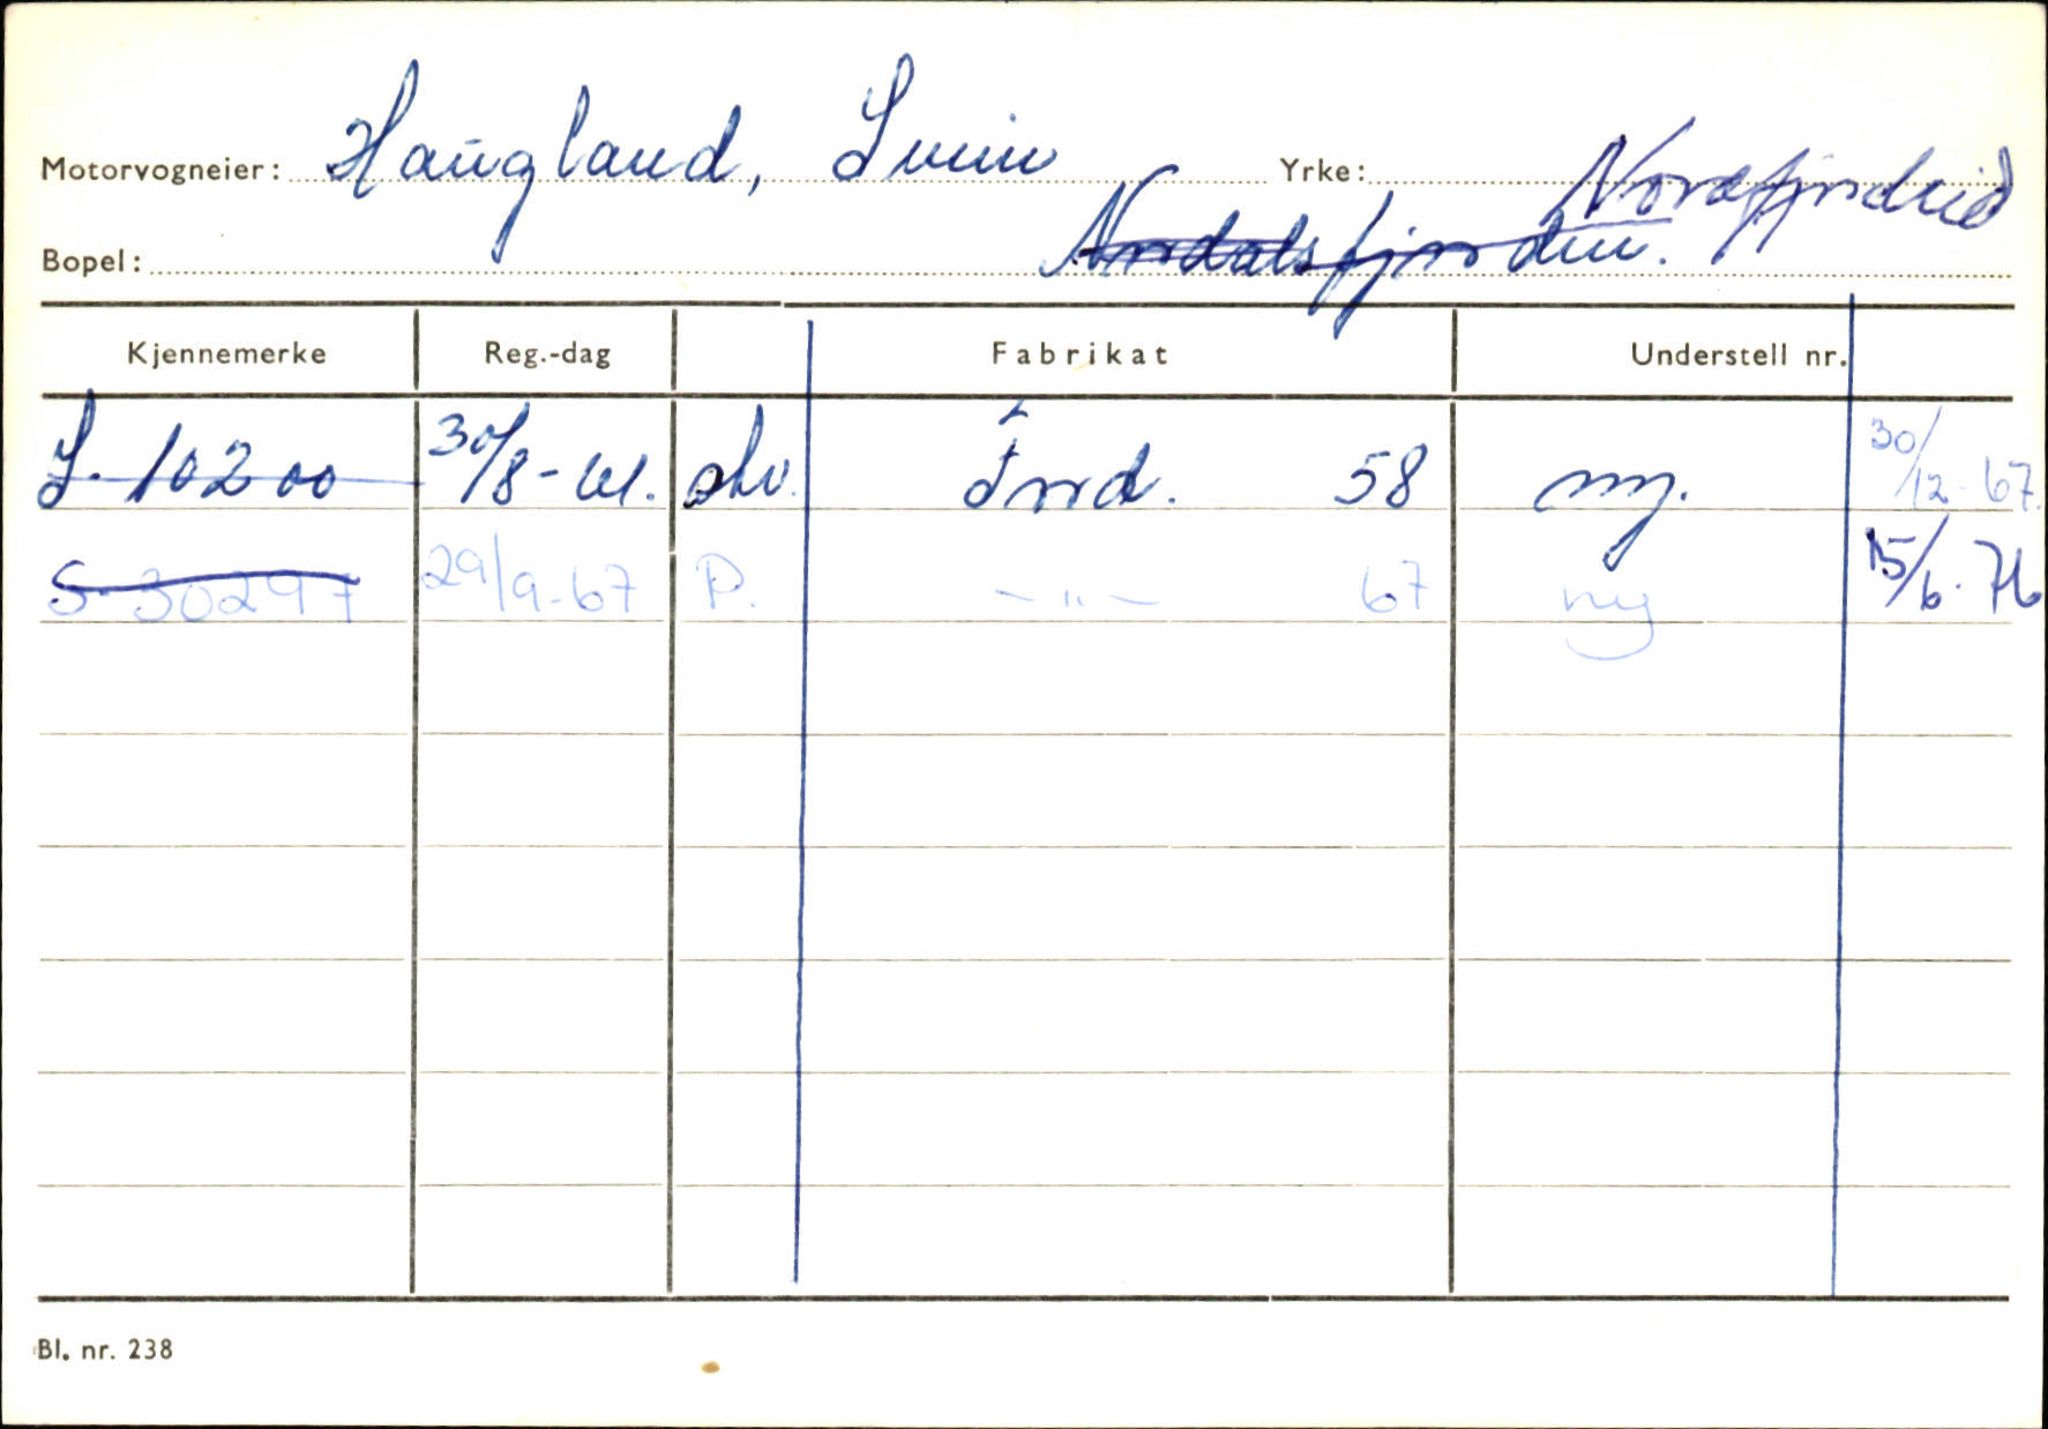 Motorvogneier: Haugland, Svein Yrke:
Nordfjordeid
Bopel: Nordalsfjorden.
Kjennemerke Reg.-dag Fabrikat Understell nr.
S. 10200 30/8-61. Ford. 58 ny. 30/12-67.
S-30297 29/9-67 P. -"- 67 ny 15/6-76
Bl. nr. 238